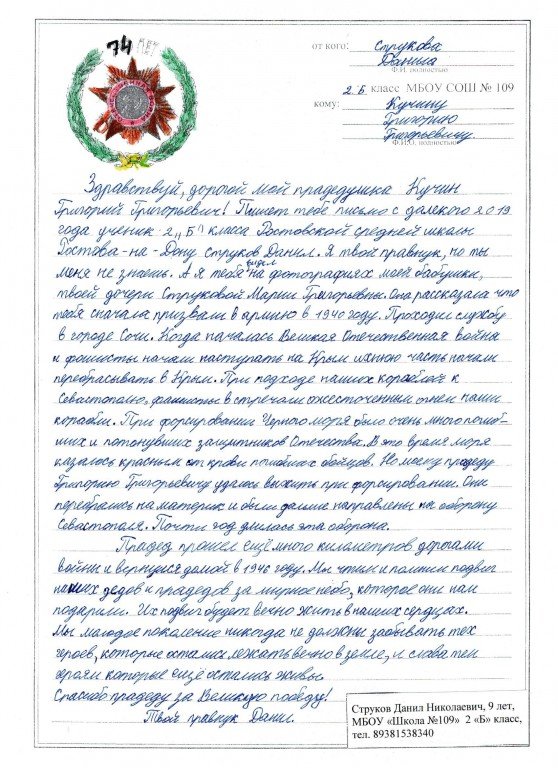 74
от кого: Струкова
Данила
Ф.И. полностью
2 Б класс МБОУ СОШ № 109
кому: Кучину
Григорию
Григорьевичу
Ф.И.О. полностью
Здравствуй, дорогой мой прадедушка Кучин
Григорий Григорьевич! Пишет тебе письмо с далекого 2019
года ученик 2 „Б" класса Ростовской средней школы
Ростова-на-Дону Струков Данил. Я твой правнук, но ты
меня не знаешь. А я тебя видел на фотографиях моей бабушки,
твоей дочери Струковой Марии Григорьевны. Она рассказала что
тебя сначала призвали в армию в 1940 году. Проходил службу
в городе Сочи. Когда началась Великая Отечественная война
и фашисты начали наступать на Крым ихнюю часть начали
перебрасывать в Крым. При подходе наших кораблей к
Севастополю, фашисты встречали ожесточенным огнем наши
корабли. При форсировании Черного моря было очень много погиб-
ших и потонувших защитников Отечества. В это время море
казалось красным от крови погибших бойцов. Но моему прадеду
Григорию Григорьевичу удалось выжить при форсировании. Они
перебрались на материк и были далше направлены на оборону
Севастополя. Почти год длилась эта оборона.
Прадед прошел ещё много километров дорогами
войны и вернулся домой в 1946 году. Мы чтим и помним подвиг
наших дедов и прадедов за мирное небо, которое они нам
подарили. Их подвиг будет вечно жить в наших сердцах.
Мы молодое поколение никогда не должны забывать тех
героев, которые остались лежать вечно в земле, и слава тем
героям которые ещё остались живы.
Спасибо прадеду за Великую победу!
Твой правнук Данил.
Струков Данил Николаевич, 9 лет,
МБОУ «Школа №109» 2 «Б» класс,
тел. 89381538340